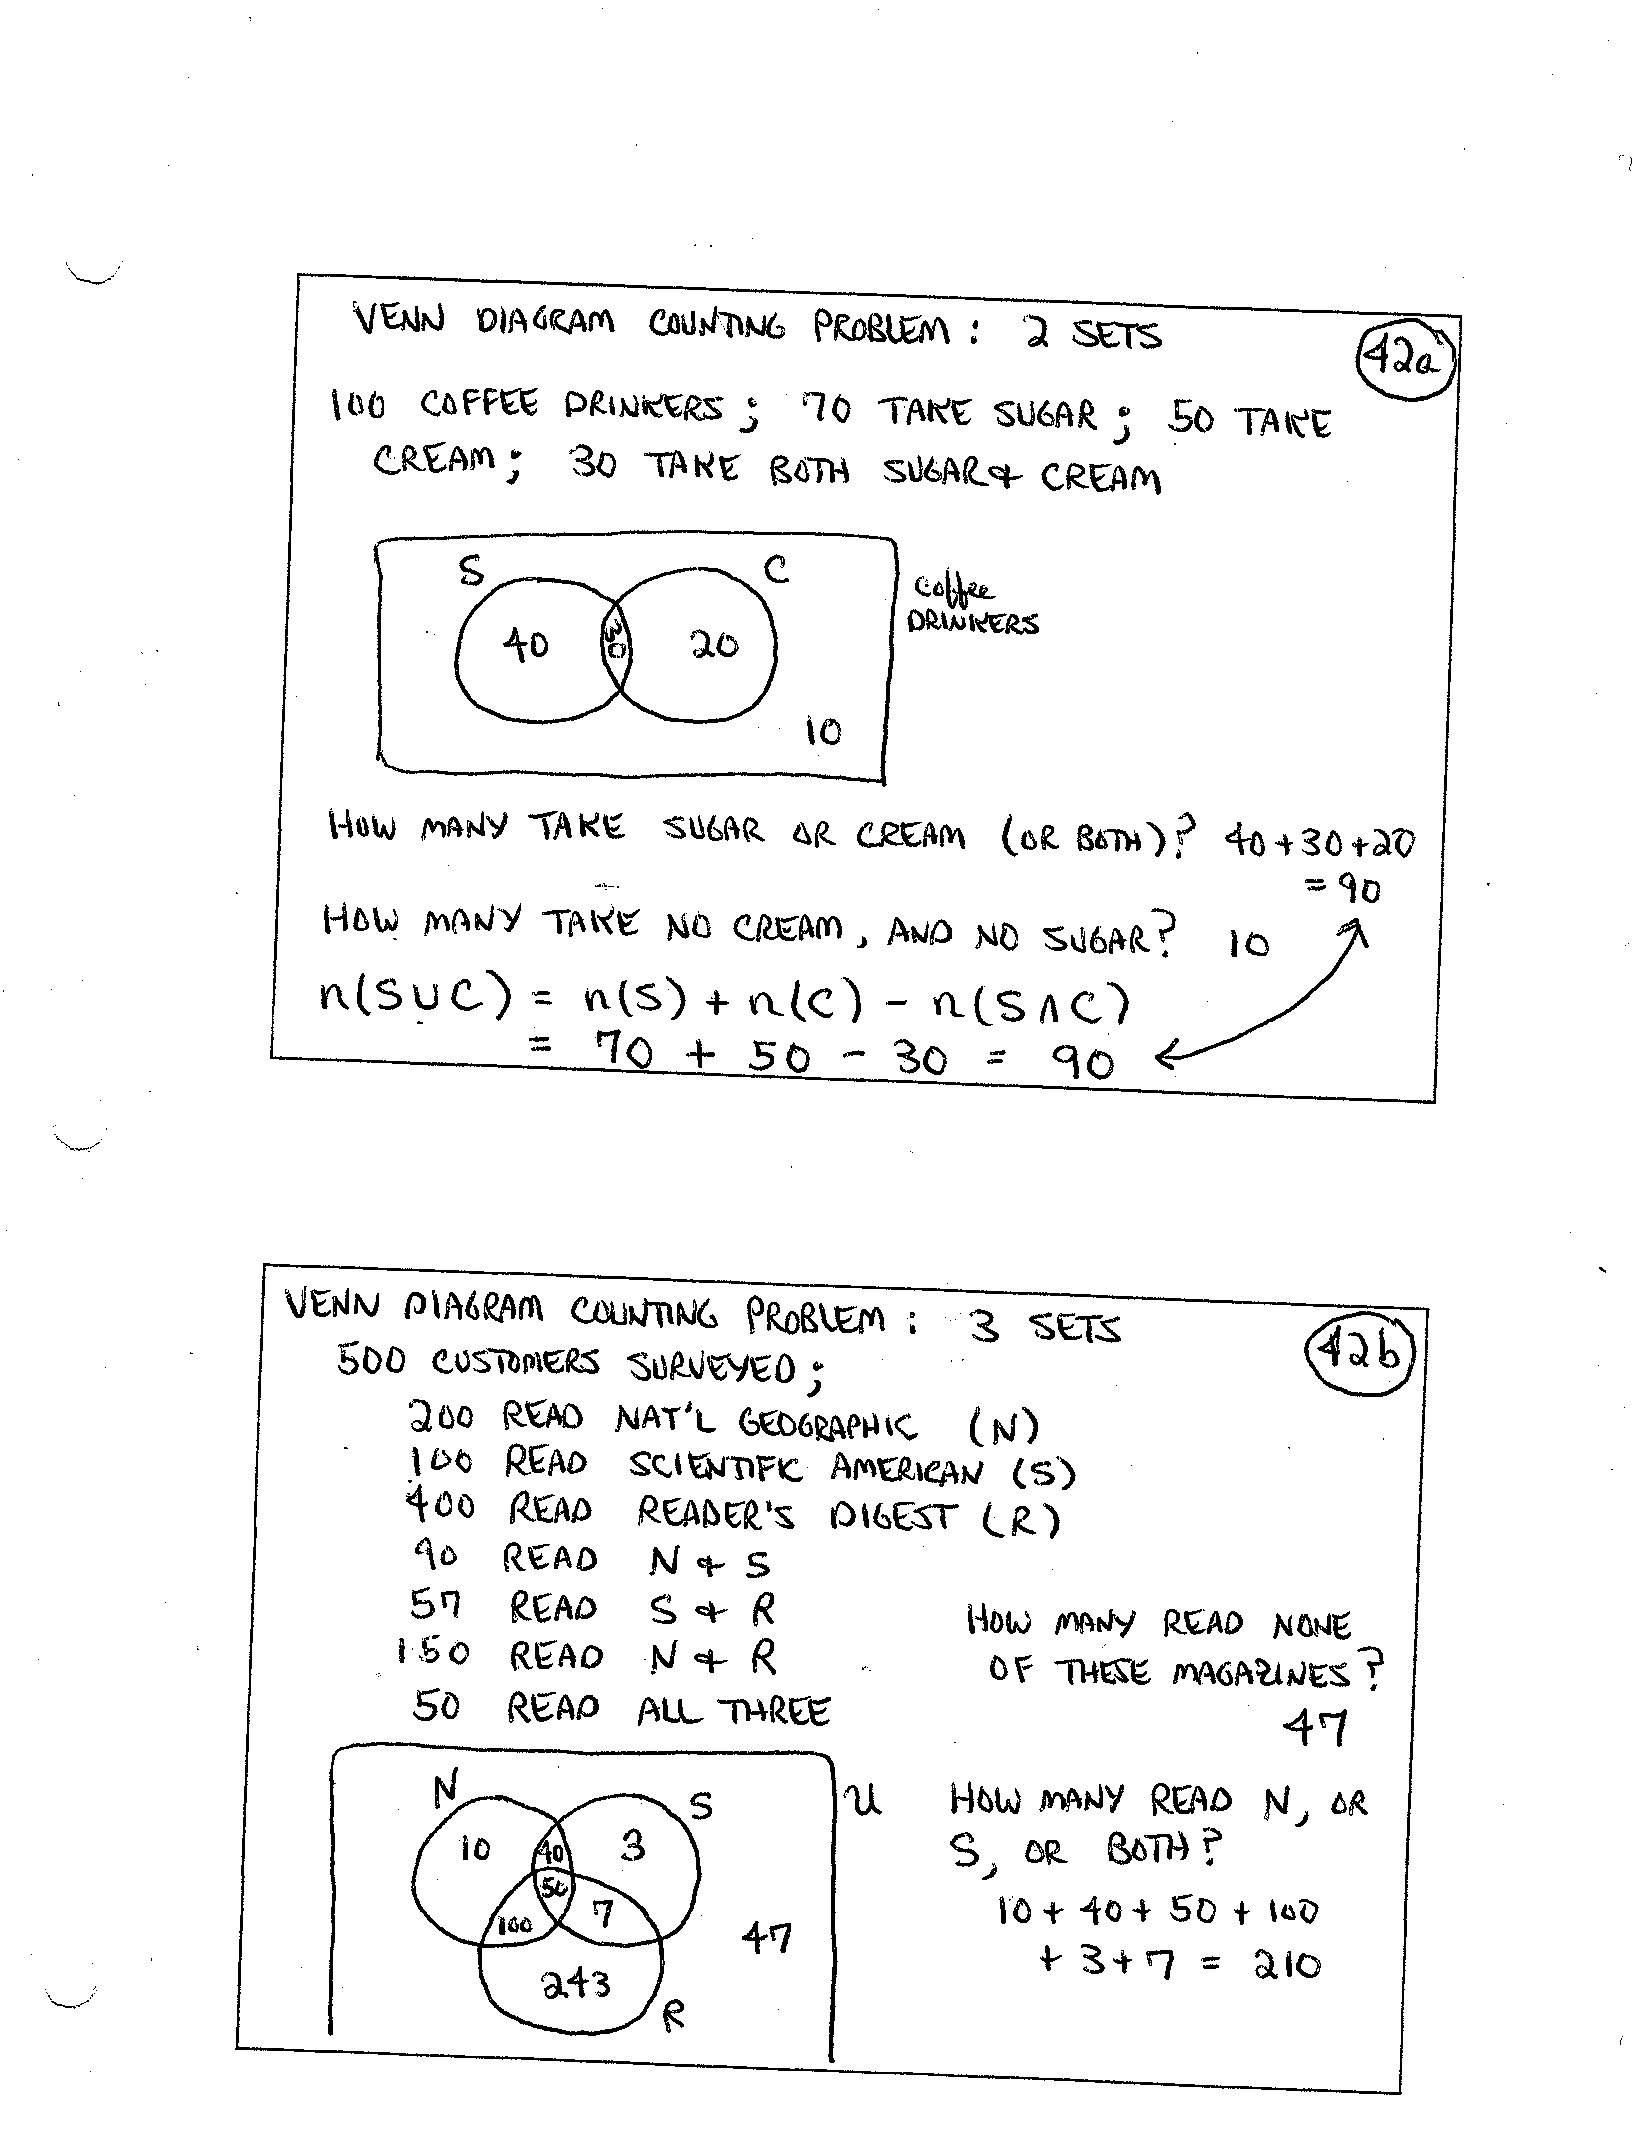 VENN DIAGRAM COUNTING PROBLEM: 2 SETS
42a
100 COFFEE DRINKERS; 70 TAKE SUGAR; 50 TAKE
CREAM; 30 TAKE BOTH SUGAR & CREAM
S C
coffee
DRINKERS
40 30 20
10
HOW MANY TAKE SUGAR OR CREAM (OR BOTH)? 40+30+20
= 90
HOW MANY TAKE NO CREAM, AND NO SUGAR? 10
n(S∪C) = n(S) + n(C) - n(S∩C)
= 70 + 50 - 30 = 90
VENN DIAGRAM COUNTING PROBLEM: 3 SETS
42b
500 CUSTOMERS SURVEYED;
200 READ NAT'L GEOGRAPHIC (N)
100 READ SCIENTIFIC AMERICAN (S)
400 READ READER'S DIGEST (R)
90 READ N & S
57 READ S & R
150 READ N & R
50 READ ALL THREE
HOW MANY READ NONE
OF THESE MAGAZINES?
47
N S U
10 40 3
50
100 7
47
243
R
HOW MANY READ N, OR
S, OR BOTH?
10 + 40 + 50 + 100
+ 3 + 7 = 210